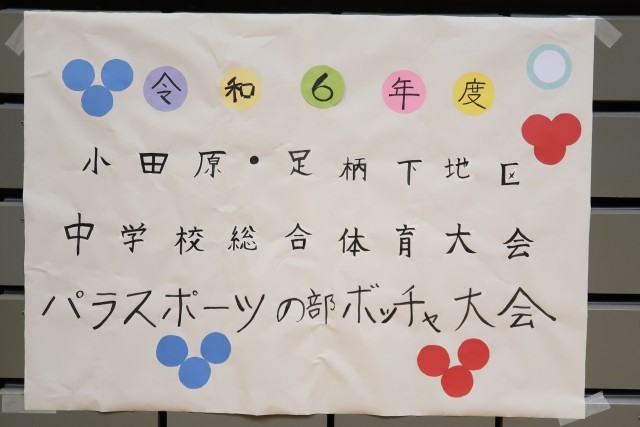 令和6年度
小田原・足柄下地区
中学校総合体育大会
パラスポーツの部ボッチャ大会